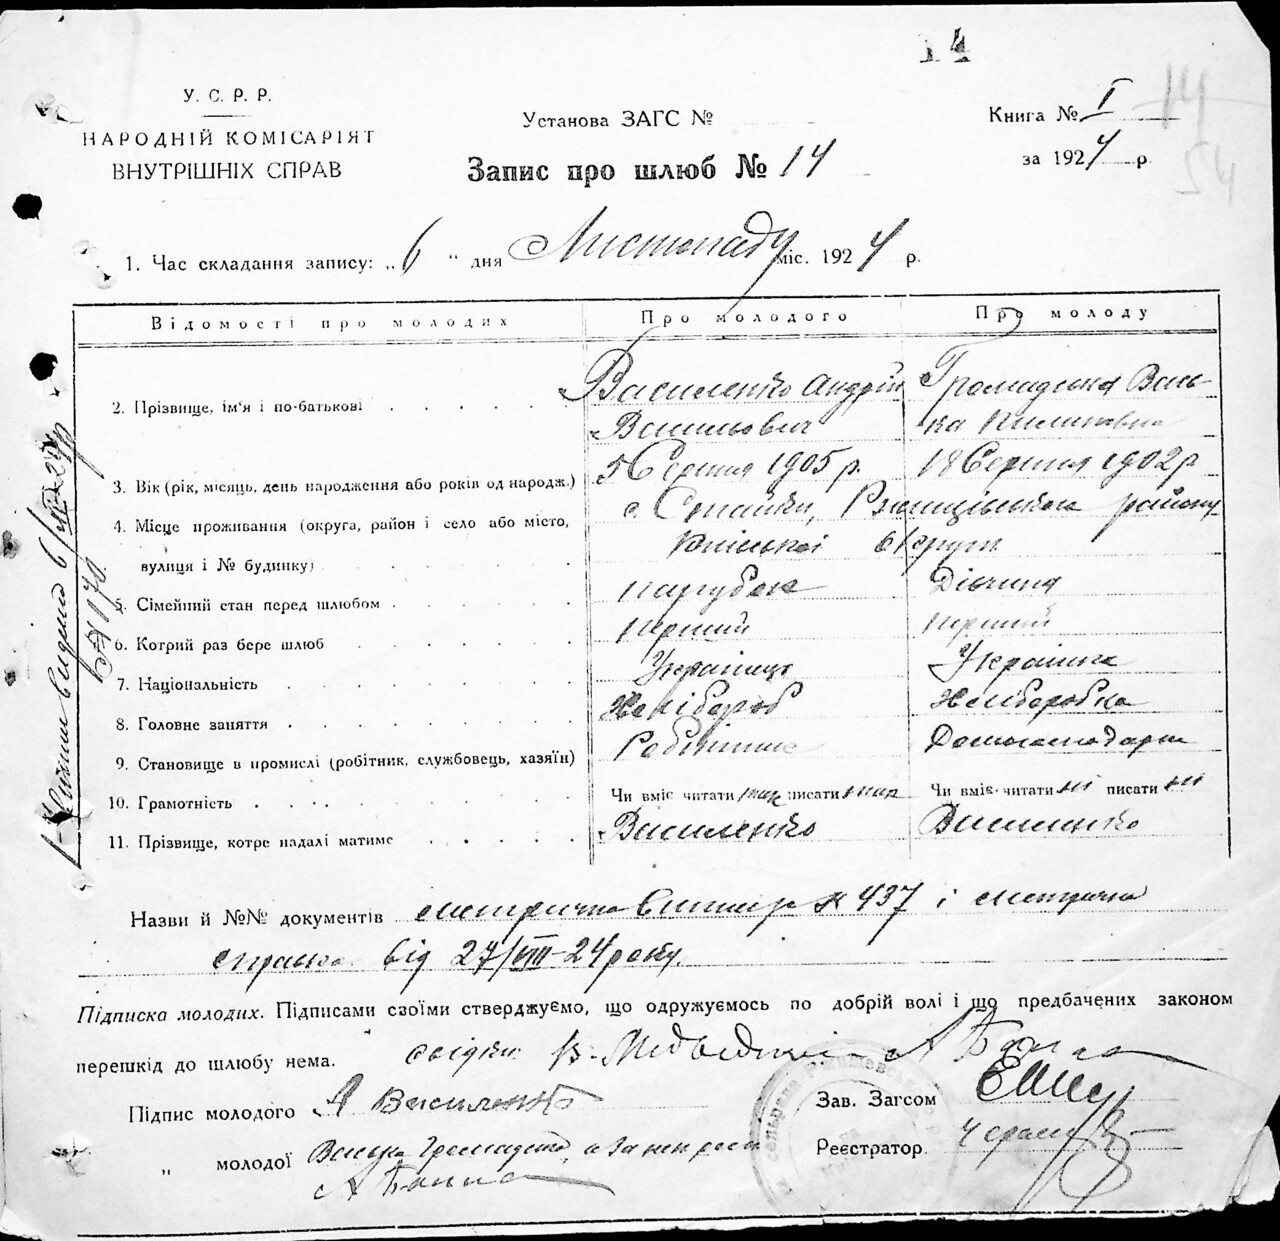 14
У. С. Р. Р.
НАРОДНІЙ КОМІСАРІЯТ
ВНУТРІШНІХ СПРАВ
Установа ЗАГС №
Книга № I
14
54
Запис про шлюб № 14
за 1924 р.
1. Час складання запису: „6“ дня Листопаду міс. 1924 р.
Відомості про молодих Про молодого Про молоду
2. Прізвище, ім'я і по-батькові Василенко Андрій Громадська Вась-
Васильович ка
3. Вік (рік, місяць, день народження або років од народж.) 5 Серпня 1905 р. 18 Серпня 1902 р
4. Місце проживання (округа, район і село або місто, с. Ржищівського району
вулиця і № будинку) Київської округи
5. Сімейний стан перед шлюбом парубок Дівчина
6. Котрий раз бере шлюб перший перший
7. Національність Українець Українка
8. Головне заняття Хлібороб Хліборобка
9. Становище в промислі (робітник, службовець, хазяїн) Робітник Домогосподарка
10. Грамотність Чи вміє читати так писати так Чи вміє читати ні писати ні
11. Прізвище, котре надалі матиме Василенко Василенко
Назви й №№ документів метрична № 437 і метрична
справка від 27/VIII-24 року.
Підписка молодих. Підписами своїми стверджуємо, що одружуємось по добрій волі і що предбачених законом
перешкід до шлюбу нема. свідки
Підпис молодого А Василенко
Зав. Загсом
„ молодої Васька
Реєстратор